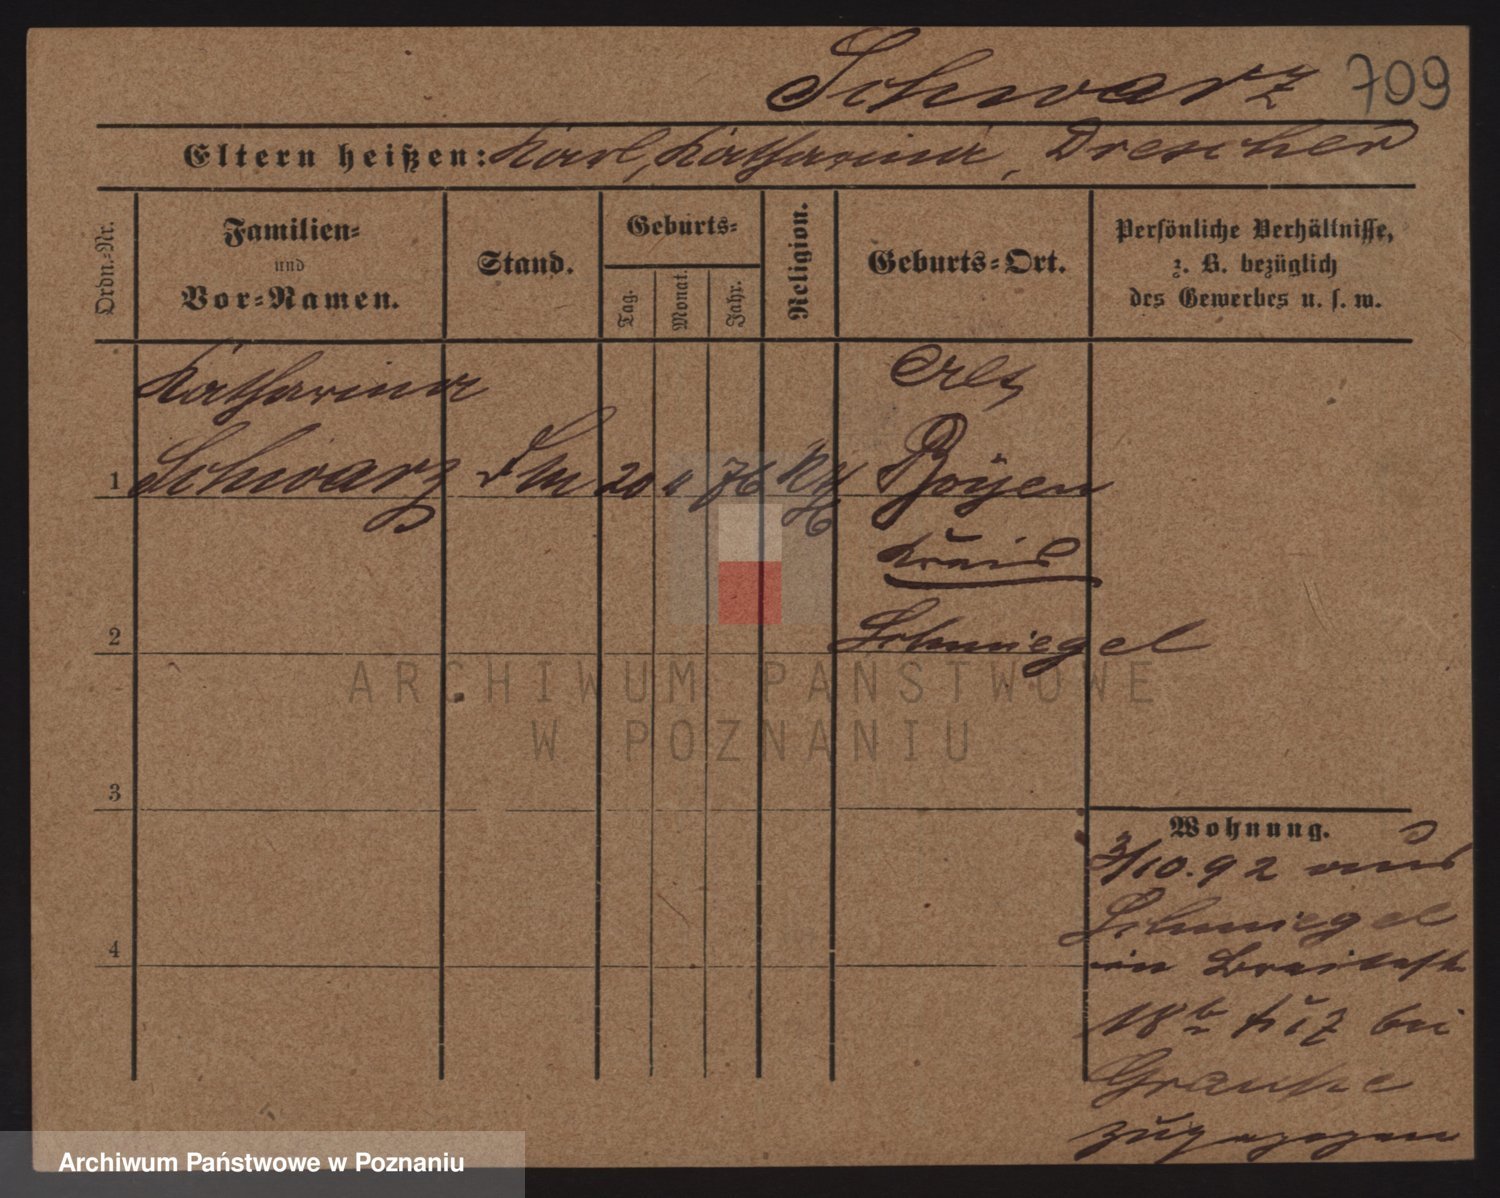 Schwarz 709
Eltern heißen: Karl, Katharina, Drescher
Ordn.-Nr.
Familien-
und
Vor-Namen.
Stand.
Geburts-
Tag.
Monat.
Jahr.
Religion.
Geburts-Ort.
Persönliche Verhältnisse,
z. B. bezüglich
des Gewerbes u. s. w.
Katharina
Alt
1 Schwarz 20 76 Kth Boyen
Kreis
2 Schmiegel
ARCHIWUM PAŃSTWOWE
W POZNANIU
3
Wohnung.
3/10.92 aus
Schmiegel
in Breitestr
4
18 b bei
zugezogen
Archiwum Państwowe w Poznaniu